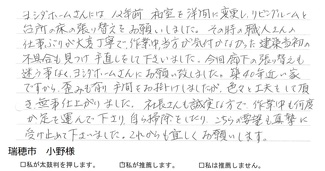 ヨシダホームさんには12年前 和室を洋間に変更し、リビングルームと
台所の床の張り替えをお願いしました。その時の職人さんの
仕事ぶりが大変丁寧で、作業中当方が気付かなかった建築当初の
不具合も見つけ手直しをして下さいました。今回廊下の張り替えも
迷う事なく、ヨシダホームさんにお願い致しました。築40年近い家
ですから、歪みも有り手間をお掛けしましたが、色々と工夫をして頂
き無事仕上がりました。社長さんも誠実な方で作業中も何度
か足を運んで下さり自ら掃除をしたり こちらの要望も真摯に
受け止めて下さいました。これからも宜しくお願いします。
瑞穂市 小野様
□私が太鼓判を押します。 ☑私が推薦します。 □私は推薦しません。